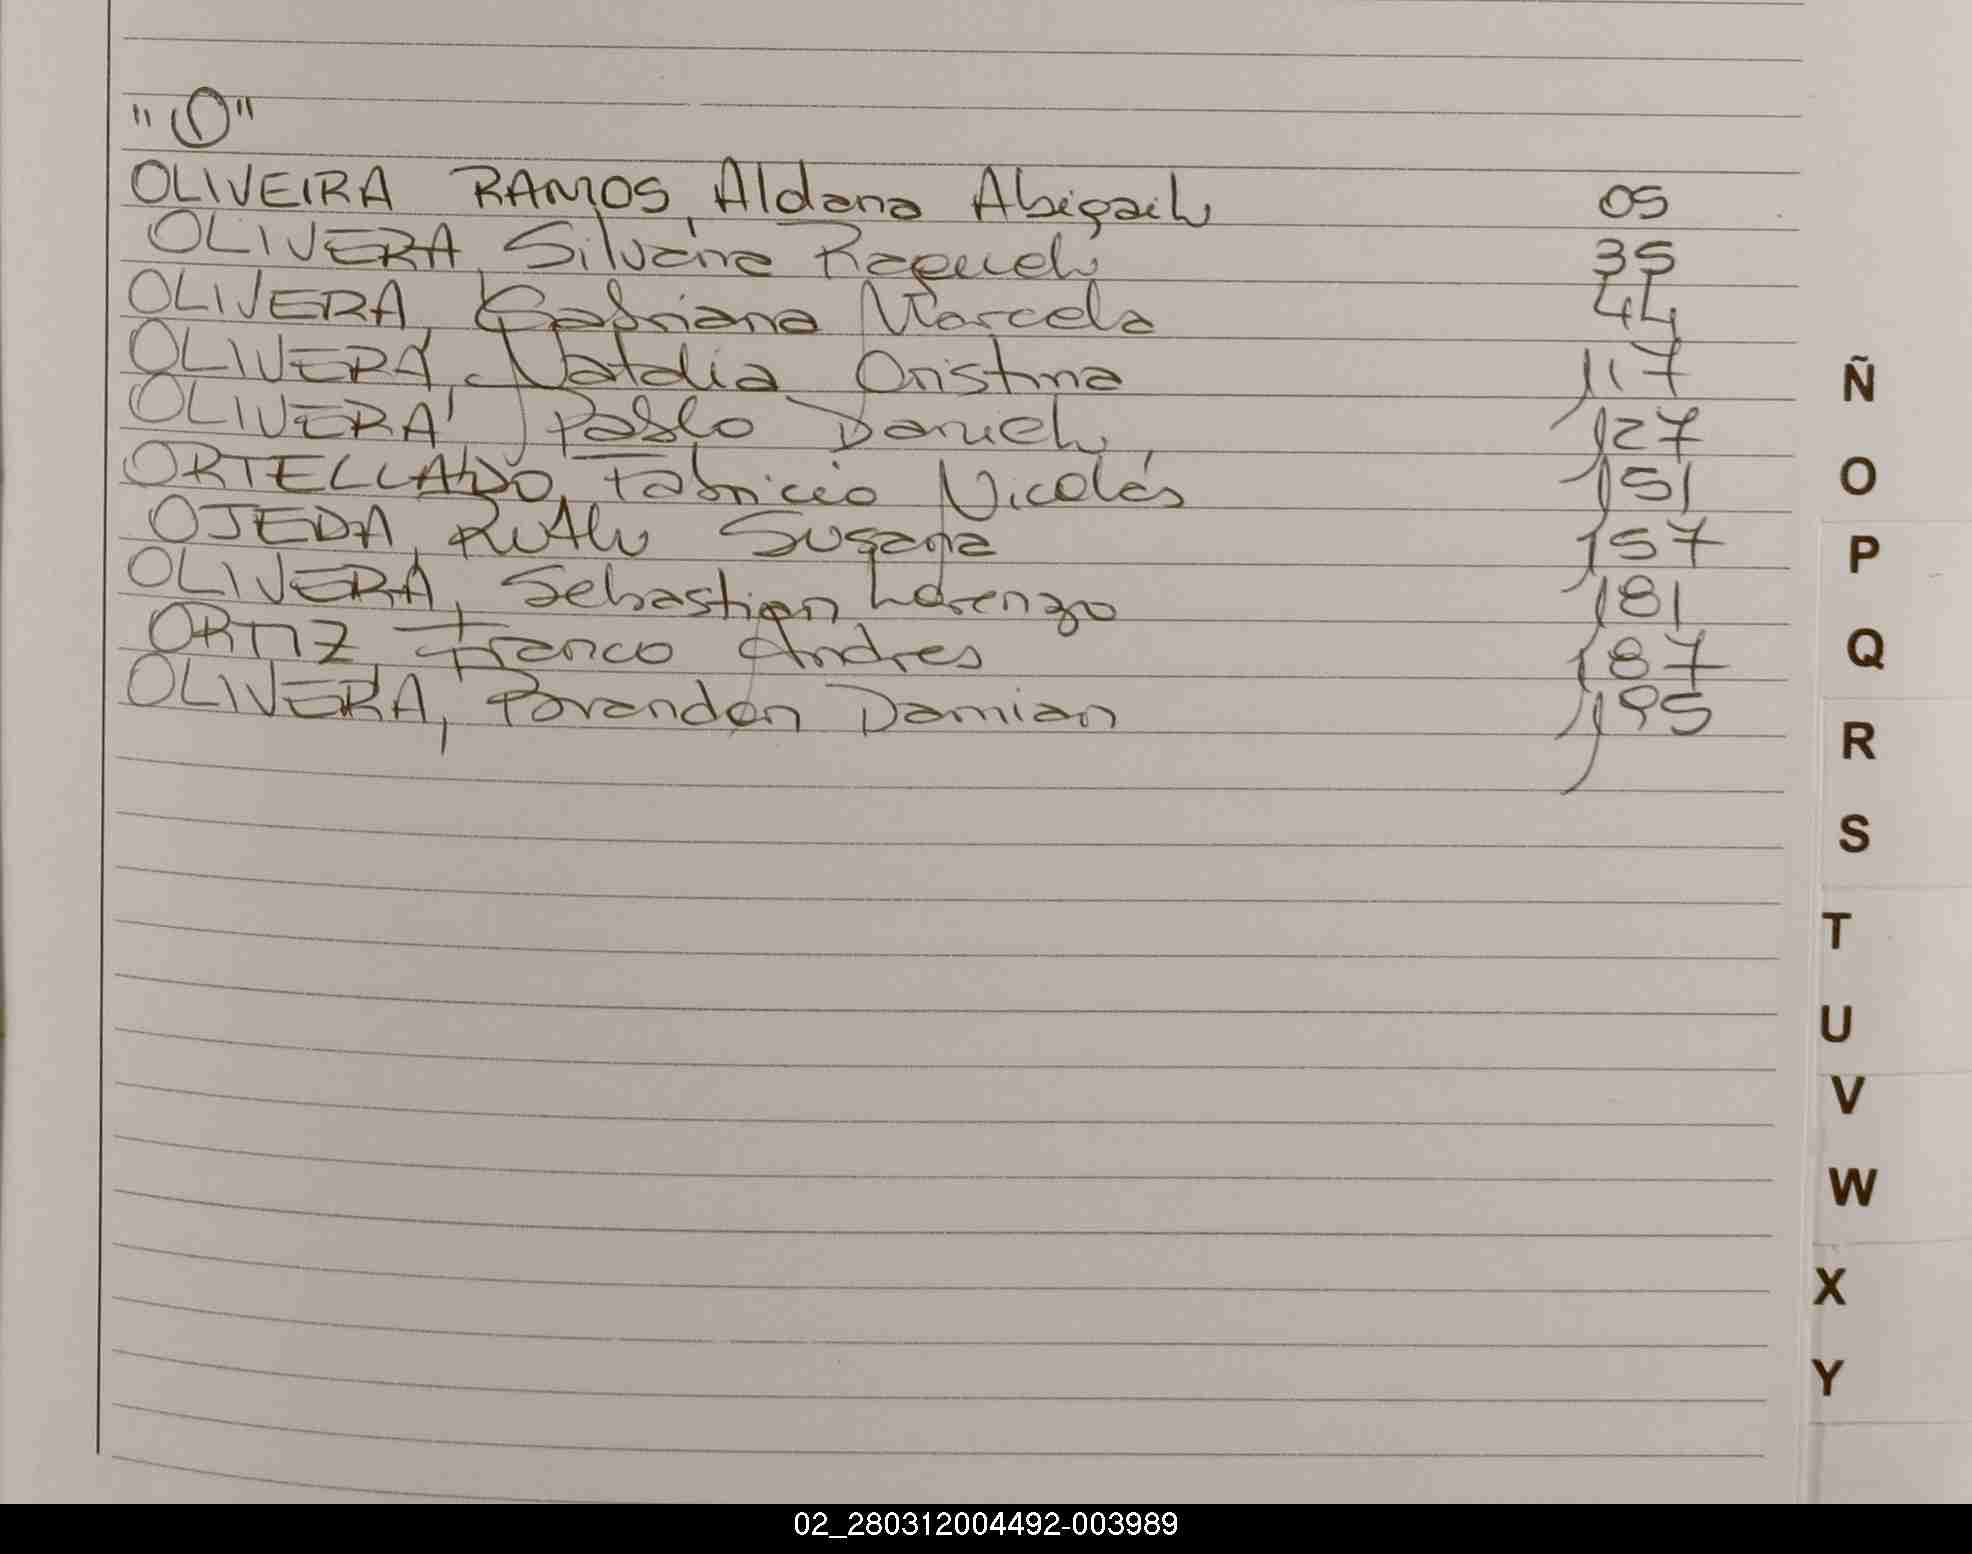 "O"
OLIVEIRA RAMOS, Aldana Abigail 05
OLIVERA, Silvana Raquel 35
OLIVERA, Gabriana Marcela 44
OLIVERA, Natalia Cristina 117
OLIVERA, Pablo Daniel 127
ORTELLADO, Fabricio Nicolás 151
OJEDA, Ruth Susana 157
OLIVERA, Sebastian Lorenzo 181
ORTIZ, Franco Andres 187
OLIVERA, Brandon Damian 195
Ñ
O
P
Q
R
S
T
U
V
W
X
Y
02_280312004492-003989